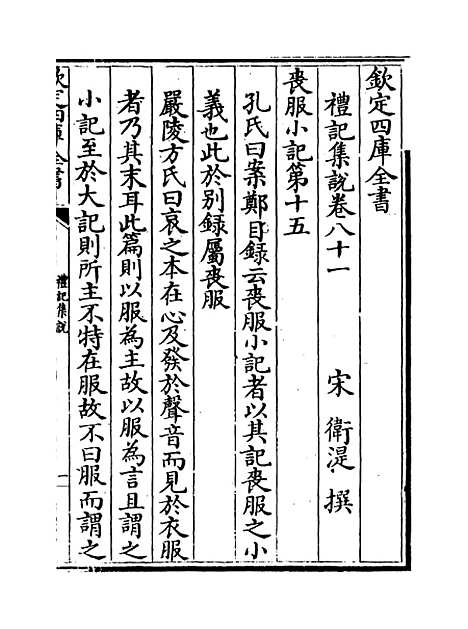 欽定四庫全書
禮記集說卷八十一
宋 衛湜 撰
喪服小記第十五
孔氏曰案鄭目録云喪服小記者以其記喪服之小
義也此於别録屬喪服
嚴陵方氏曰哀之本在心及發於聲音而見於衣服
者乃其末耳此篇則以服為主故以服為言且謂之
小記至於大記則所主不特在服故不曰服而謂之
欽定四庫全書
禮記集說
一